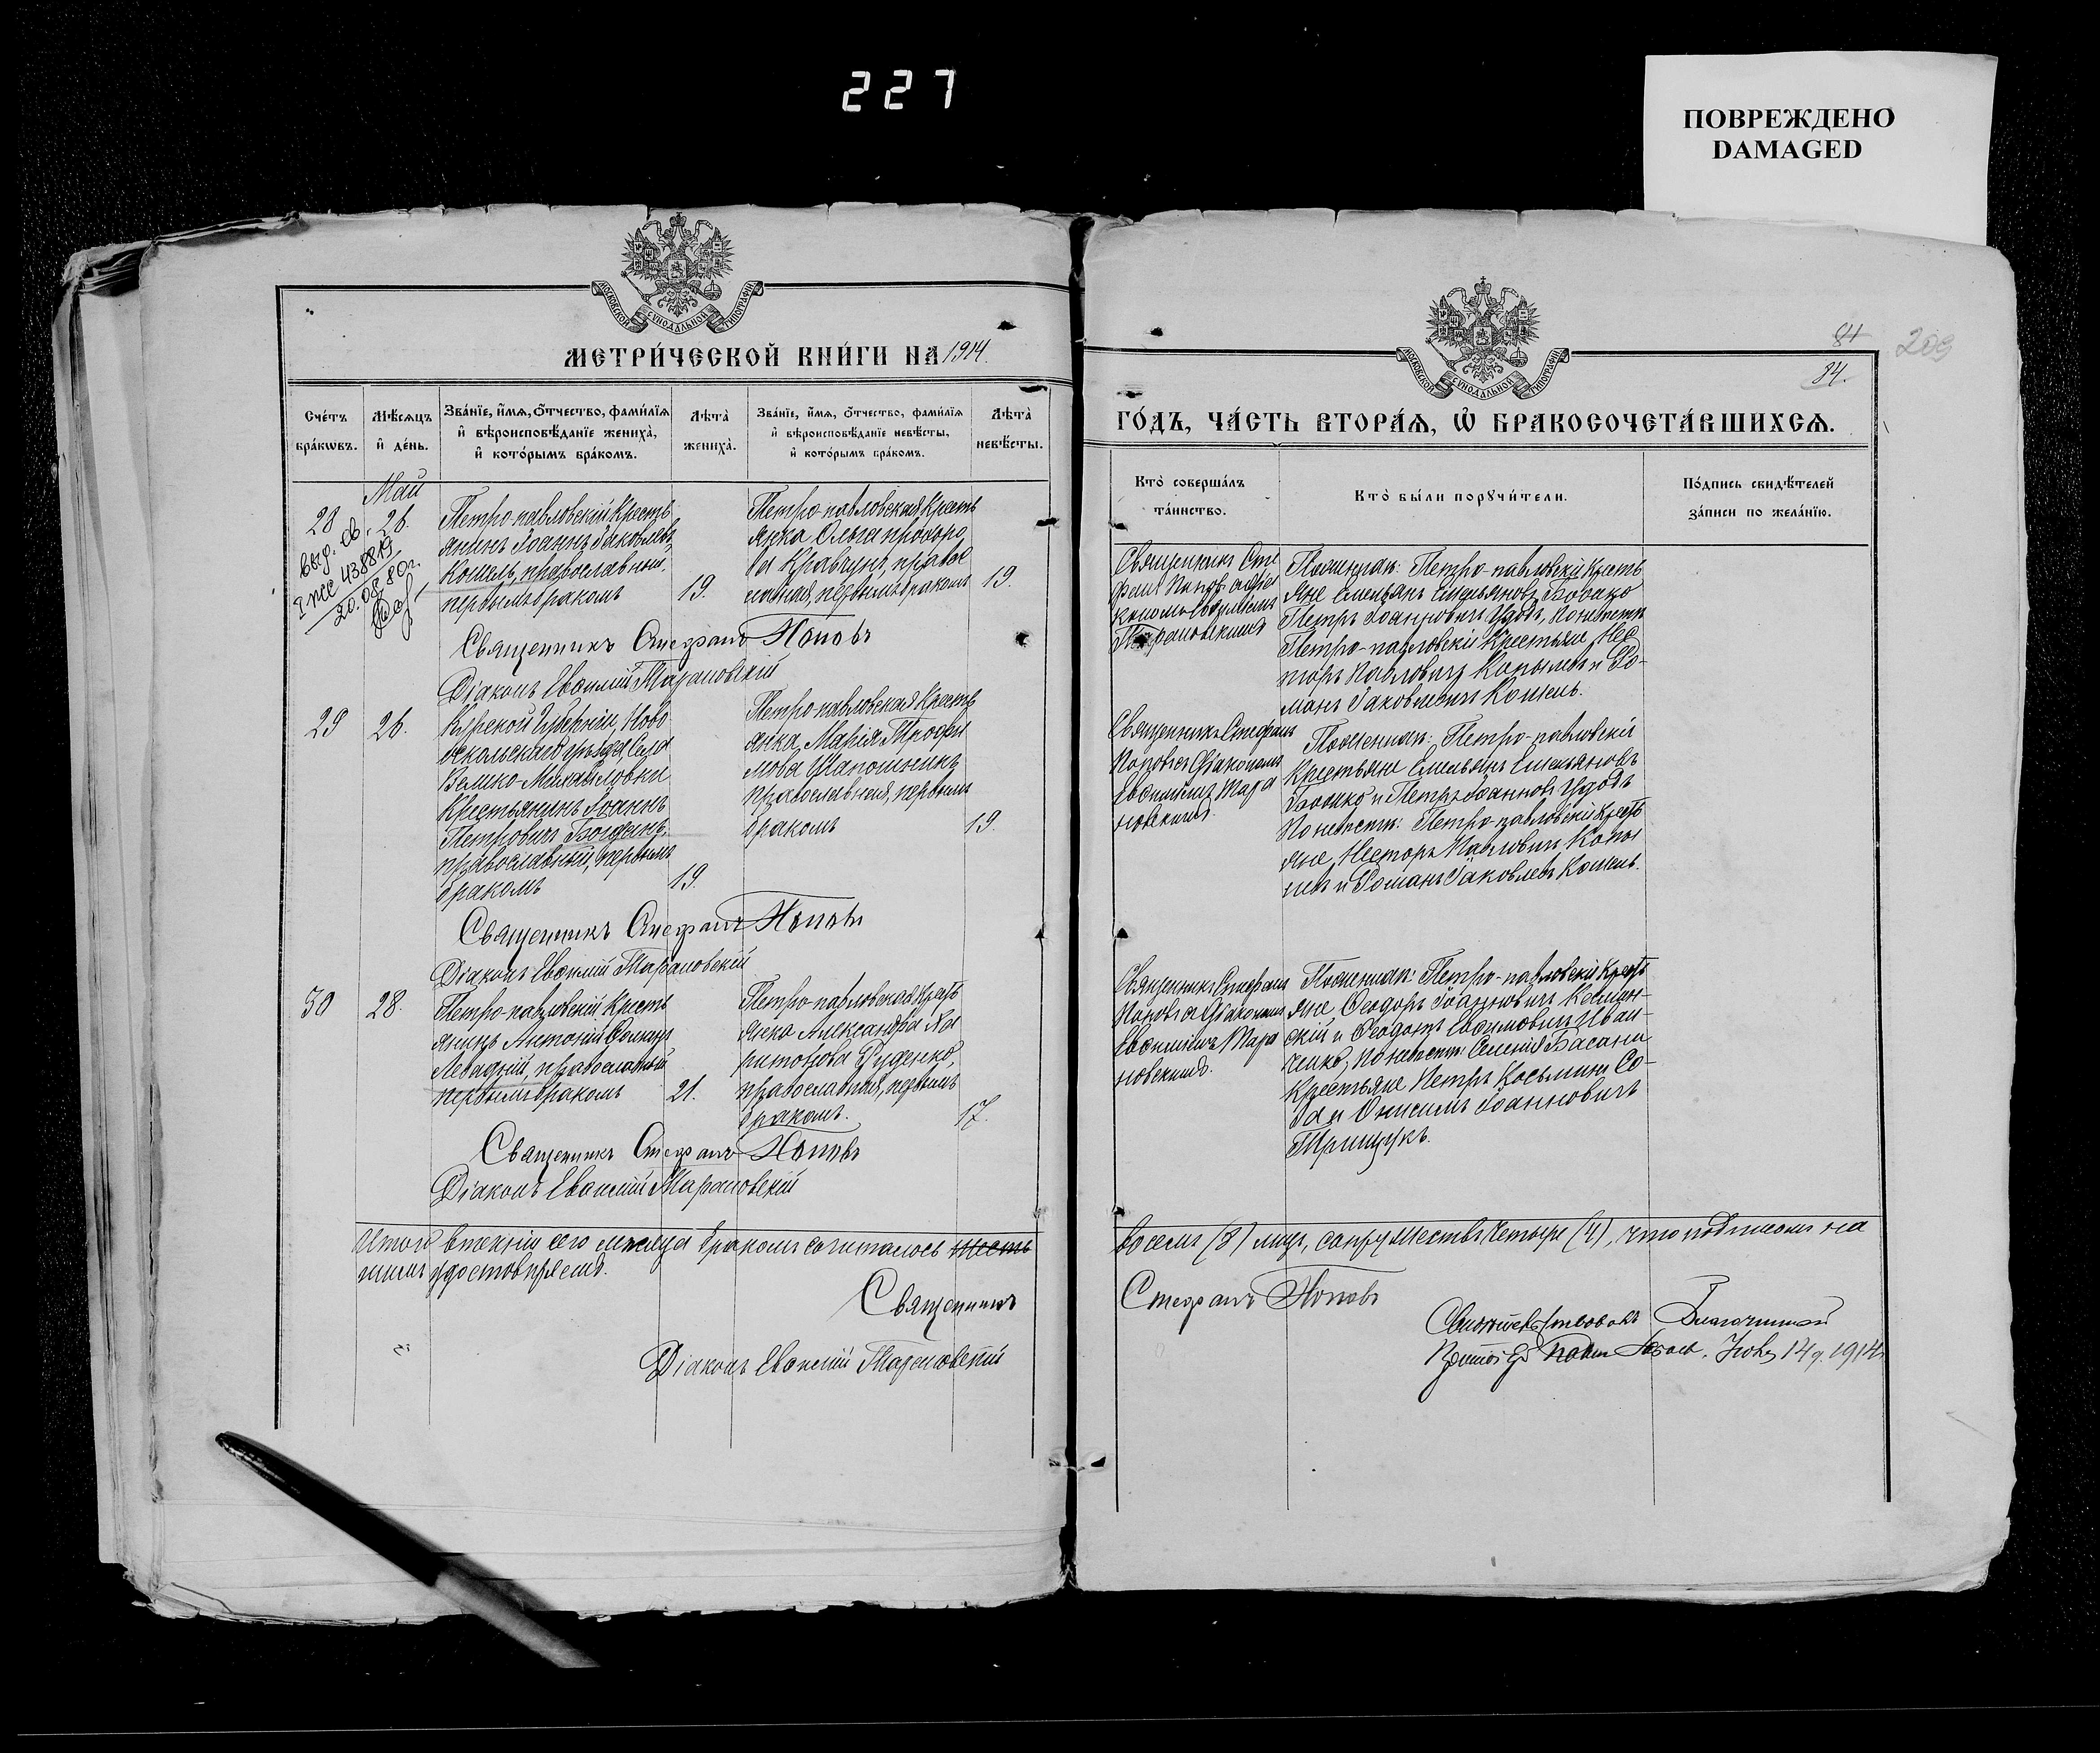 227
ПОВРЕЖДЕНО
DAMAGED
МОСКОВСКОЙ СѴНОДАЛЬНОЙ ТИПОГРАФІИ
МЕТРИ́ЧЕСКОЙ КНИ́ГИ НА 1914.
Сче́тъ бра́кωвъ.
Мѣ́сяцъ и҆ де́нь.
Зва́нїе, и҆́мѧ, ѻ҆́тчество, фами́лїѧ
и҆ вѣроисповѣ́данїе жениха̀,
и҆ кото́рымъ бра́комъ.
Лѣта̀ жениха̀.
Зва́нїе, и҆́мѧ, ѻ҆́тчество, фами́лїѧ
и҆ вѣроисповѣ́данїе невѣ́сты,
и҆ кото́рымъ бра́комъ.
Лѣта̀ невѣ́сты.
Май
28
26.
Выд. св.
438819
20.08.80г.
Петро-павловскій Кресть
янинъ Іоаннъ Іаковлевъ
Кошель, православный,
первымъ бракомъ
19.
Петро-павловская Кресть
янка Ольга Прохоро
ва Кравчунъ, право
славная, первымъ бракомъ
19.
Священникъ Стефанъ Поповъ
Діаконъ Евѳимій Тарановскій
29
26.
Курской Губерніи, Ново
оскольскаго уѣзда, Села
Велико-Михайловки
Крестьянинъ Іоаннъ
Петровичъ Богданъ,
православный, первымъ
бракомъ
19.
Петро-павловская Кресть
янка Марія Трофи
мова Шапошникъ
православная, первымъ
бракомъ
19.
Священникъ Стефанъ Поповъ
Діаконъ Евѳимій Тарановскій
30
28.
Петро-павловскій Кресть
янинъ Антоній Ѳоминъ
Левадній, православный
первымъ бракомъ
21.
Петро-павловская Кресть
янка Александра Ха
ритонова Руденко,
православная, первымъ
бракомъ.
17.
Священникъ Стефанъ Поповъ
Діаконъ Евѳимій Тарановскій
Итого втеченіи сего мѣсяца бракомъ сочиталось шесть
симъ удостовѣряемъ.
Священникъ
Діаконъ Евѳимій Тарановскій
МОСКОВСКОЙ СѴНОДАЛЬНОЙ ТИПОГРАФІИ
84
209
84.
ГО́ДЪ, ЧА́СТЬ ВТОРА́Ѧ, Ѡ҆ БРАКОСОЧЕТА́ВШИХСѦ.
Кто̀ соверша́лъ та́инство.
Кто̀ бы́ли порꙋчи́тели.
По́дпись свидѣ́телей
за́писи по жела́нїю.
Священникъ Сте
фанъ Поповъ съ діа
кономъ Евѳиміемъ
Тарановскимъ
По женихѣ: Петро-павловскій Кресть
яне Емельянъ Емельяновъ Бовко
Петръ Іоанновичъ Удодъ, По невѣстѣ
Петро-павловскій Крестьяне Нес
торъ Павловичъ Копылъ и Ро-
манъ Іаковлевичъ Кошель.
Священникъ Стефанъ
Поповъ съ Діакономъ
Евѳиміемъ Тара
новскимъ.
По женихѣ: Петро-павловскій
Крестьяне Емельянъ Емельяновъ
Бовко и Петръ Іоанновъ Удодъ
По невѣстѣ: Петро-павловскій Кресть
яне, Несторъ Павловичъ Копы
лъ и Романъ Іаковлевъ Кошель.
Священникъ Стефанъ
Поповъ съ Діакономъ
Евѳиміемъ Тара
новскимъ.
По женихѣ: Петро-павловскій Кресть
яне, Ѳеодоръ Іоанновичъ
и Ѳеодотъ Евѳимовичъ Иван-
ченко, по невѣстѣ: Селенія Басани
Крестьяне Петръ Косьминъ Со-
ва и Онисимъ Іоанновичъ
Грищукъ.
восемь (8) лицъ, супружествъ четыре (4), что подписомъ на
Стефанъ Поповъ
Свидѣтельствовалъ Благочинный
14 1914